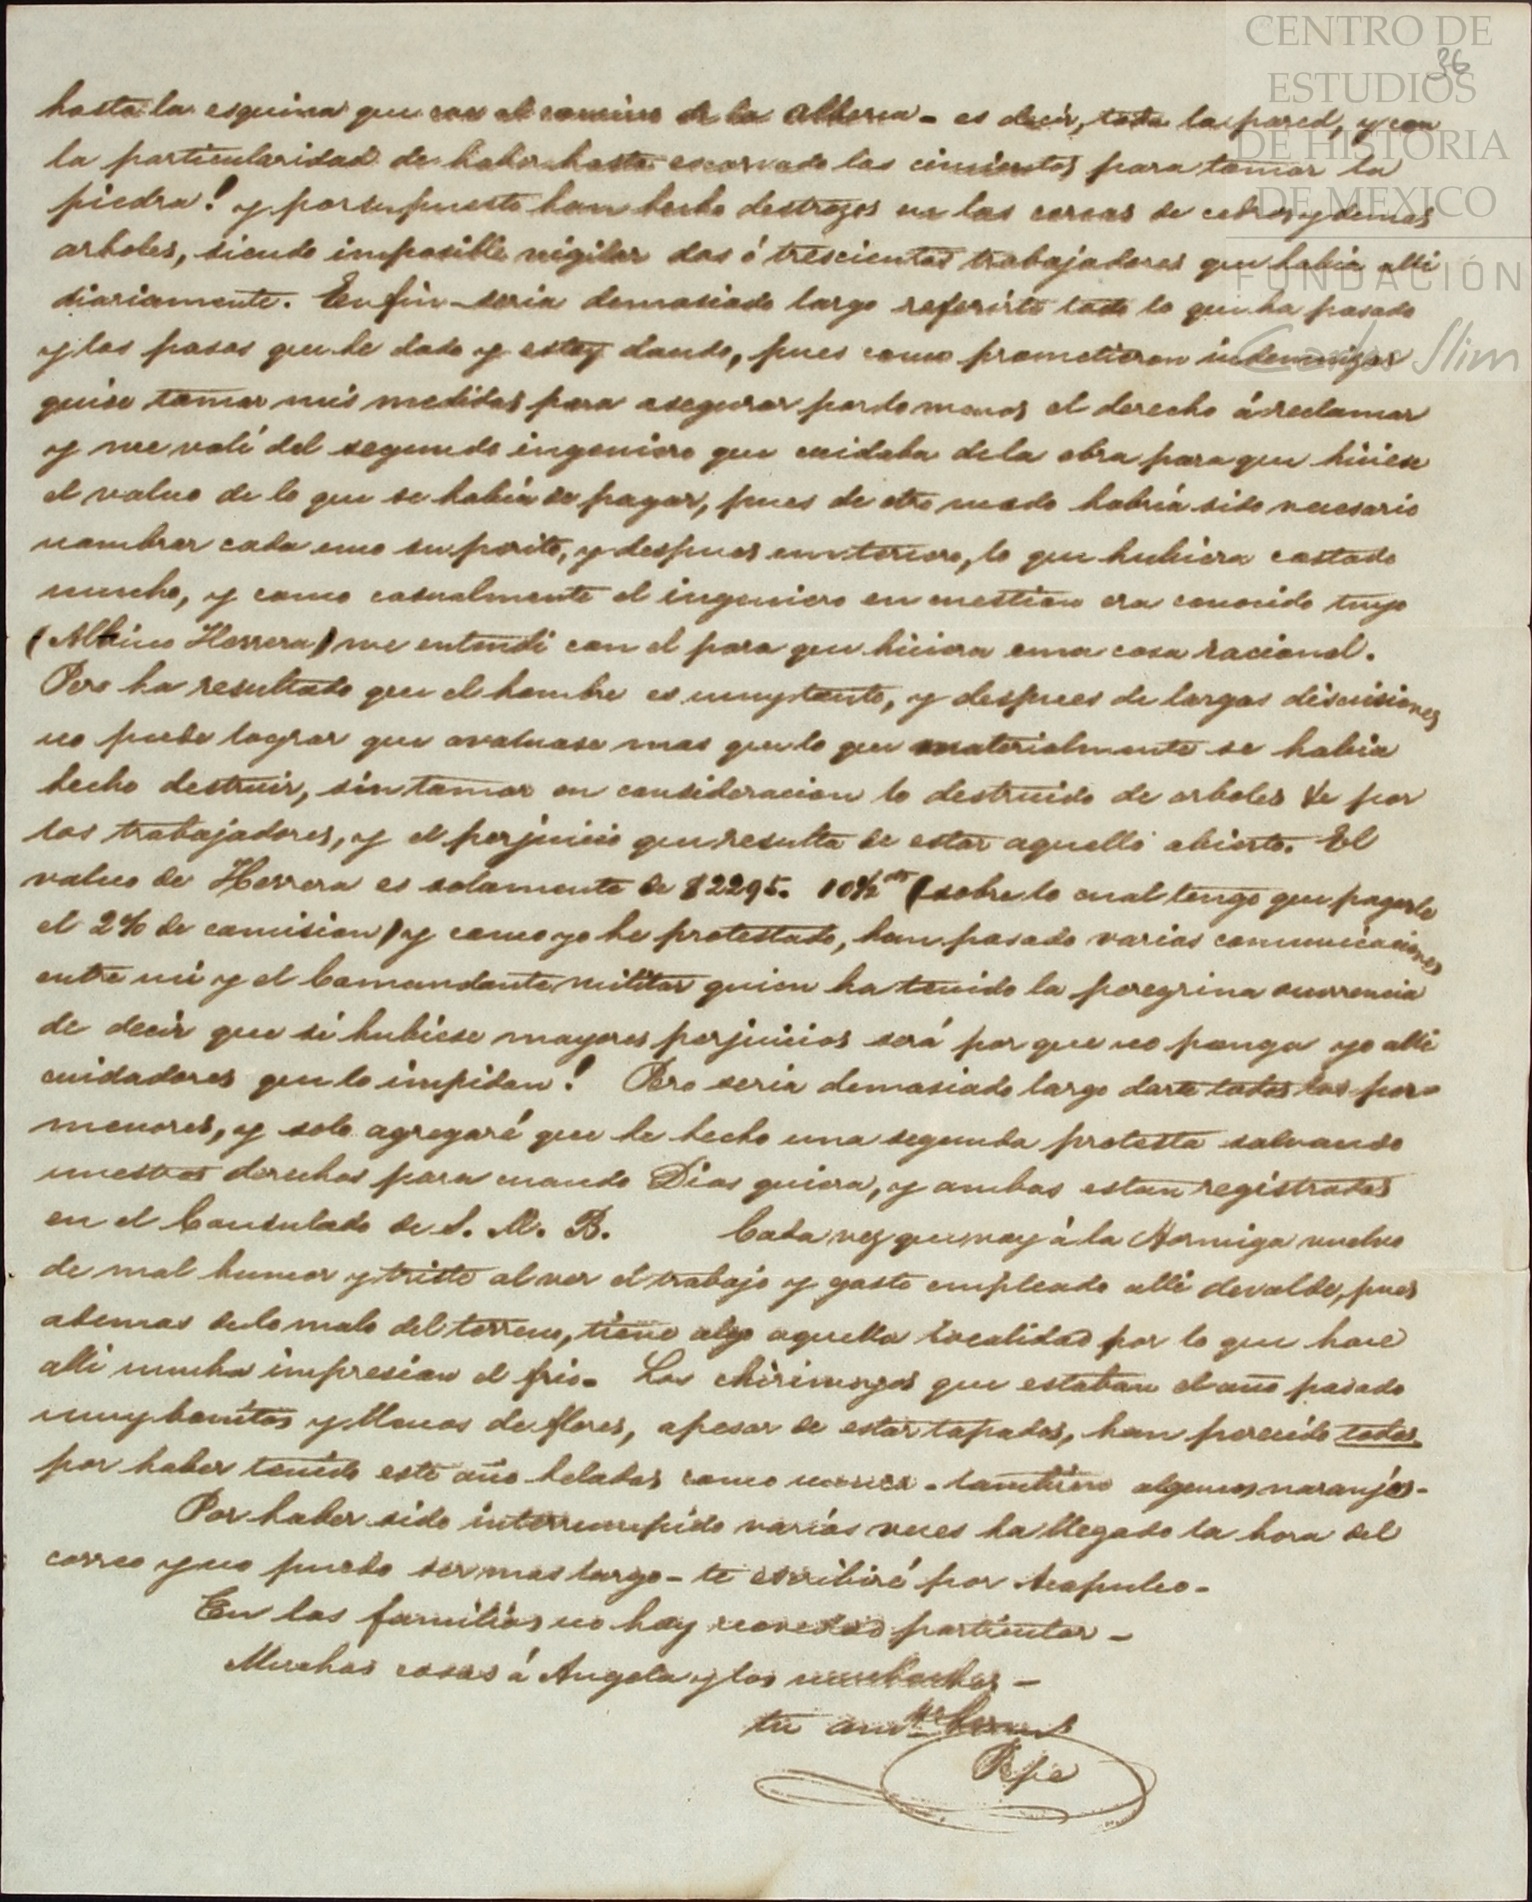 CENTRO DE
ESTUDIOS
DE HISTORIA
DE MEXICO
FUNDACIÓN
Carlos Slim
36
hasta la esquina que cae al camino de la Alberca - es decir, toda la pared, y con
la particularidad de haber hasta escarvado los cimientos para tomar la
piedra! y por supuesto han hecho destrozos en las cercas de cedros y demas
arboles, siendo imposible vigilar dos ó trescientos trabajadores que habia alli
diariamente. En fin - seria demasiado largo referirte todo lo que ha pasado
y los pasos que he dado y estoy dando, pues como prometieron indemnizar
quise tomar mis medidas para asegurar por lo menos el derecho á reclamar
y me valí del segundo ingeniero que cuidaba de la obra para que hiciese
el valuo de lo que se había de pagar, pues de otro modo habría sido necesario
nombrar cada uno su perito, y despues un tercero, lo que hubiera costado
mucho, y como casualmente el ingeniero en cuestion era conocido tuyo
(Albino Herrera) me entendi con el para que hiciera una cosa racional.
Pero ha resultado que el hombre es muy tonto, y despues de largas discusiones
no pude lograr que avaluase mas que lo que materialmente se habia
hecho destruir, sin tomar en consideracion lo destruido de arboles &c por
los trabajadores, y el perjuicio que resulta de estar aquello abierto. El
valuo de Herrera es solamente de $2295. 10½ cts (sobre lo cual tengo que pagarle
el 2% de comision) y como yo he protestado, han pasado varias comunicaciones
entre mi y el Comandante militar quien ha tenido la peregrina ocurrencia
de decir que si hubiese mayores perjuicios será por que no ponga yo alli
cuidadores que lo impidan! Pero seria demasiado largo darte todos los por=
menores, y solo agregaré que he hecho una segunda protesta salvando
nuestros derechos para cuando Dios quiera, y ambas estan registradas
en el Consulado de S. M. B. Cada vez que voy á la Hormiga vuelvo
de mal humor y triste al ver el trabajo y gasto empleado alli devalde, pues
ademas de lo malo del terreno, tiene algo aquella localidad por lo que hace
alli mucha impresion el frio. Los chirimoyos que estaban el año pasado
muy bonitos y llenos de flores, apesar de estar tapados, han perecido todos
por haber tenido este año heladas como nunca - tambien algunos naranjos -
Por haber sido interrumpido varias veces ha llegado la hora del
correo y no puedo ser mas largo - te escribiré por Acapulco -
En las familias no hay novedad particular -
Muchas cosas á Angela y los muchachos -
tu
Pepe